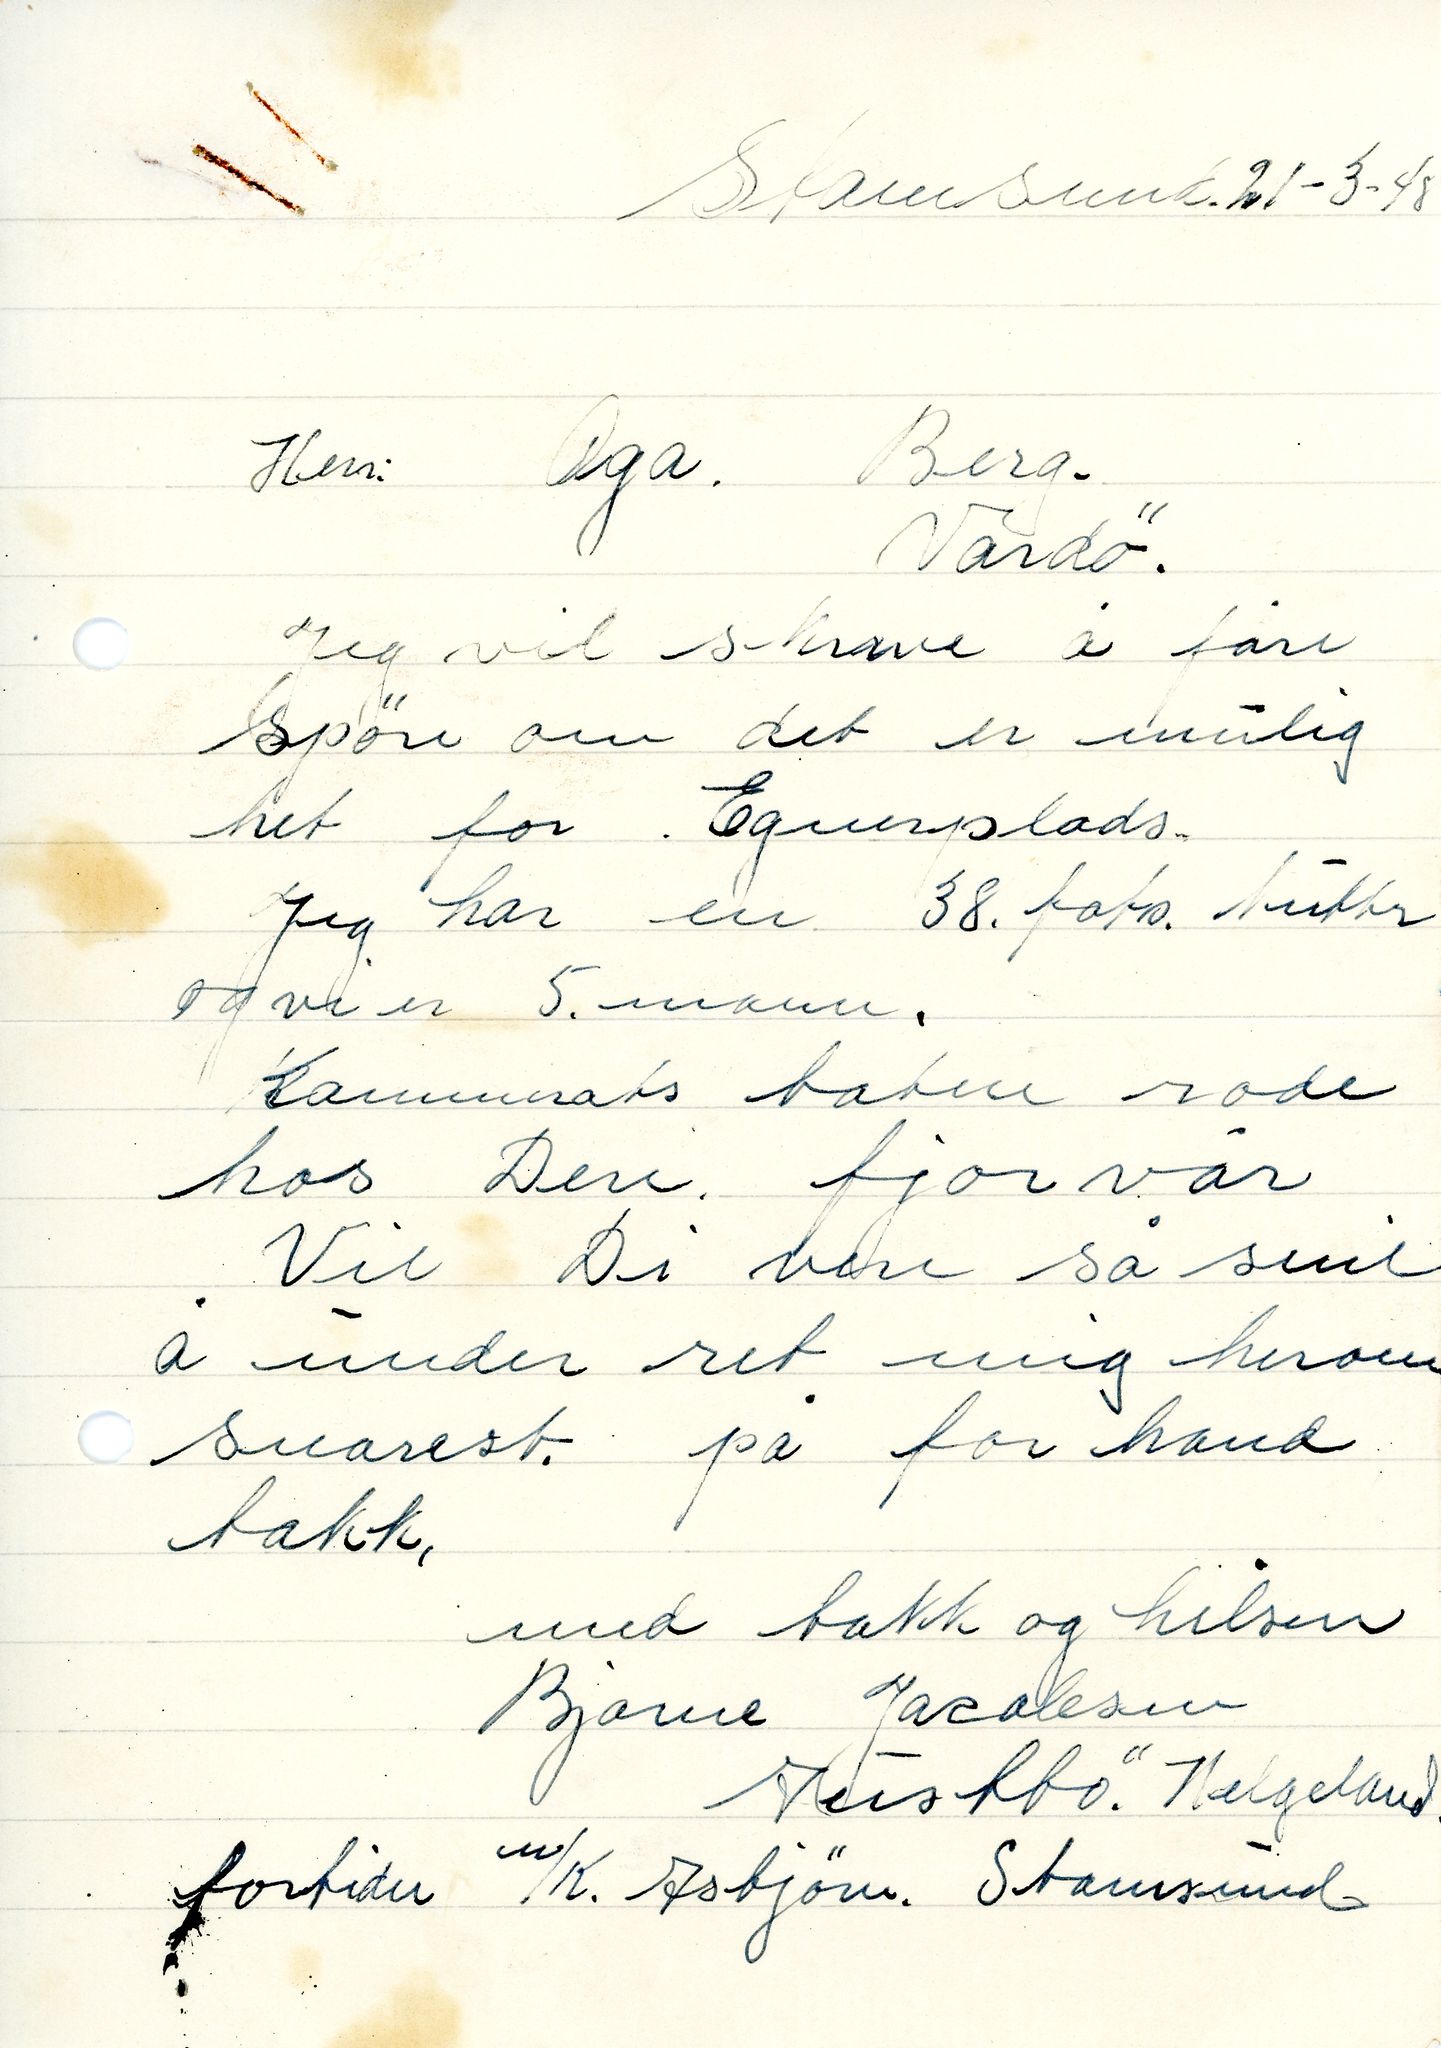 Stamsund. 21-3-48
Herr: Aga. Berg.
Vardö.
Jeg vil skrive å fore
spöre om det er mulig
het for Egnerplads.
Jeg har en 38. fots. kutter
og vi er 5. mann.
Kammerats båten rode
hos Dere. fjor vår
Vil Di vere så snil
å under ret mig herom
snarest. på for hand
takk,
med takk og hilsen
Bjarne Jacobsen
Helgeland.
fortiden m/K. Asbjörn. Stamsund